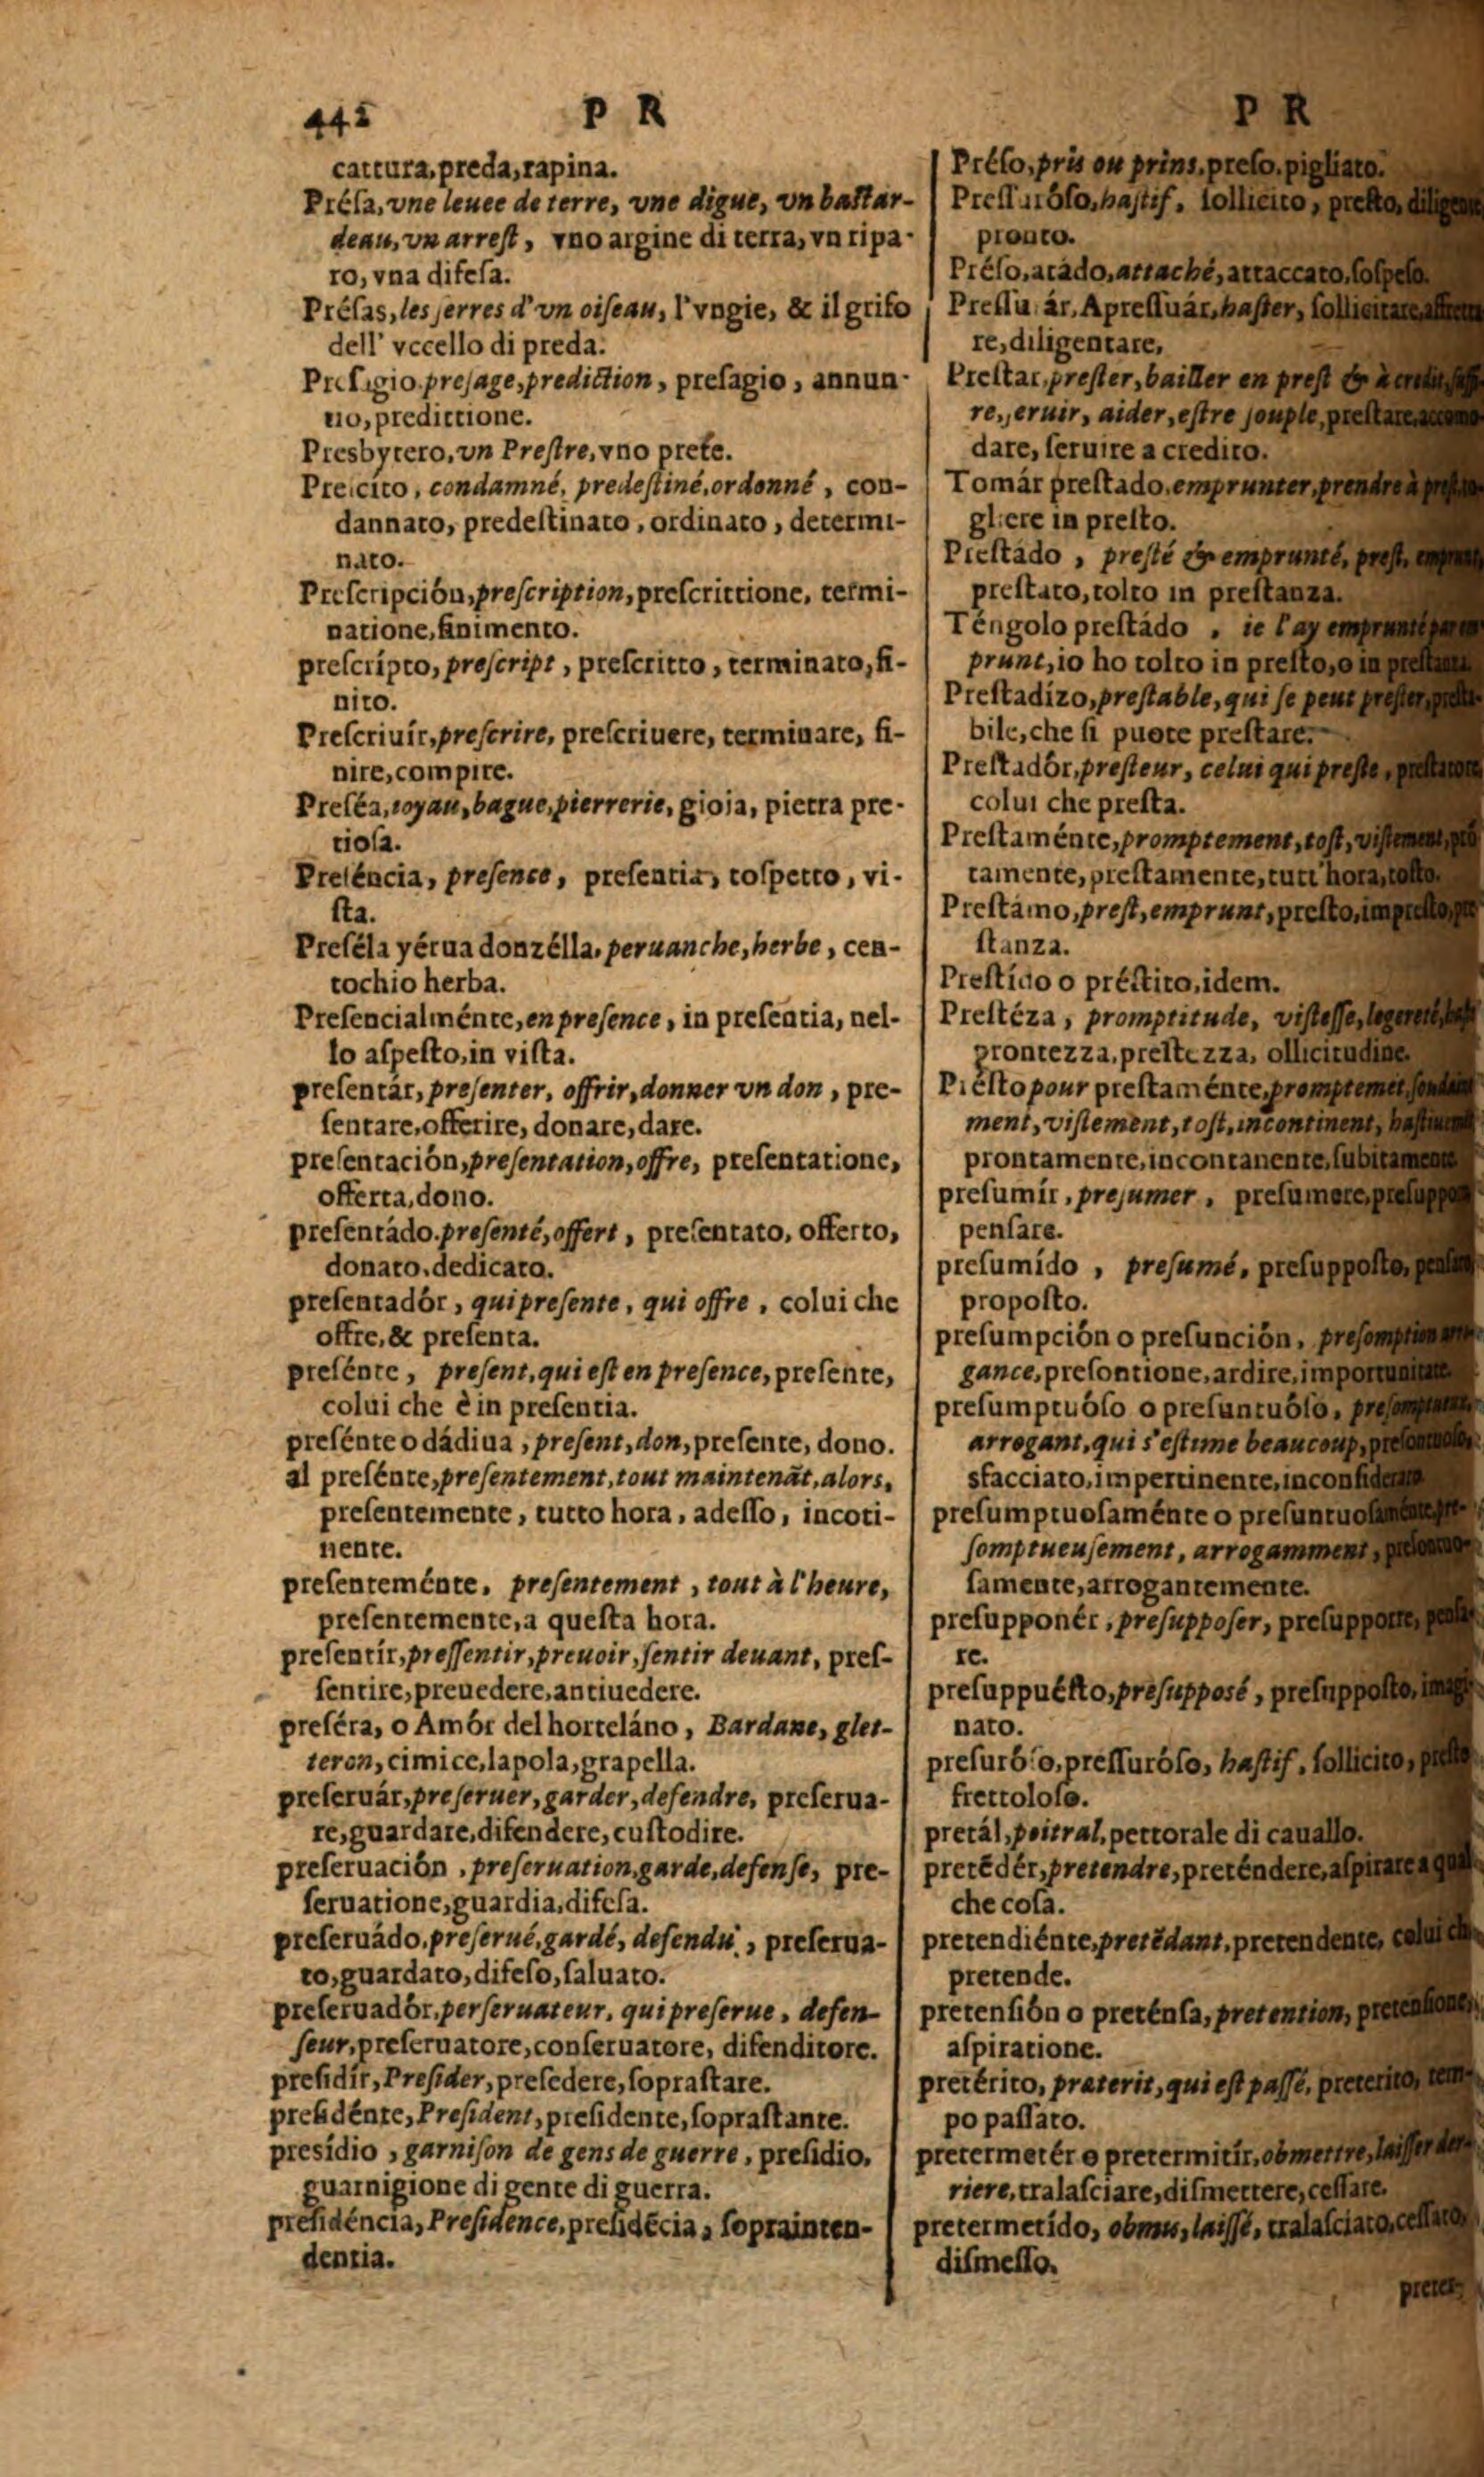 442 P R
cattura,preda,rapina.
Présa,vne leuee de terre, vne digue, vn bastar-
deau,vn arrest, vno argine di terra, vn ripa-
ro, vna difesa.
Présas,les serres d'vn oiseau, l'vngie, & il grifo
dell' vccello di preda.
Presagio.presage,prediction, presagio, annun-
tio,predittione.
Presbytero,vn Prestre,vno prete.
Precito, condamné, predestiné,ordonné, con-
dannato, predestinato, ordinato, determi-
nato.
Prescripción,prescription,prescrittione, termi-
natione,finimento.
prescrípto,prescript, prescritto, terminato,fi-
nito.
Prescriuír,prescrire, prescriuere, terminare, fi-
nire,compire.
Preséa,ioyau,bague,pierrerie, gioia, pietra pre-
tiosa.
Preséncia, presence, presentia, cospetto, vi-
sta.
Preséla yérua donzélla.peruanche,herbe, cen-
tochio herba.
Presencialménte,en presence, in presentia, nel-
lo aspesto,in vista.
presentár,presenter, offrir,donner vn don, pre-
sentare,offerire, donare,dare.
presentación,presentation,offre, presentatione,
offerta,dono.
presentádo.presenté,offert, presentato, offerto,
donato.dedicato.
presentadór, qui presente, qui offre, colui che
offre,& presenta.
presénte, present,qui est en presence,presente,
colui che è in presentia.
presénte o dádiua,present,don,presente, dono.
al presénte,presentement,tout maintenãt,alors,
presentemente, tutto hora, adesso, incoti-
nente.
presenteménte, presentement, tout à l'heure,
presentemente,a questa hora.
presentír,pressentir,preuoir,sentir deuant, pres-
sentire,preuedere,antiuedere.
preséra, o Amór del horteláno, Bardane, glet-
teron,cimice,lapola,grapella.
preseruár,preseruer,garder,defendre, preserua-
re,guardare,difendere,custodire.
preseruación,preseruation,garde,defense, pre-
seruatione,guardia,difesa.
preseruádo.preserué,gardé, defendu, preserua-
to,guardato,difeso,saluato.
preseruadór,perseruateur, qui preserue, defen-
seur,preseruatore,conseruatore, difenditore.
presidír,Presider,presedere,soprastare.
presidénte,President,presidente,soprastante.
presídio,garnison de gens de guerre, presidio,
guarnigione di gente di guerra.
presidéncia,Presidence,presidẽcia, soprainten-
dentia.
P R
Préso,pris ou prins,preso.pigliato.
Pressurôso,hastif, sollicito, presto,
pronto.
Préso,atádo,attaché,attaccato,sospeso.
Pressuár,Apressuár,haster, sollicitare,
re,diligentare,
Prestar,prester,bailler en prest & à credit,
re,seruir, aider,estre souple,prestare,accomo-
dare, seruire a credito.
Tomár prestado.emprunter,prendre à prest,to-
gliere in presto.
Prestádo, presté & emprunté, prest,
prestato,tolto in prestanza.
Téngolo prestádo, ie l'ay emprunté par em
prunt,io ho tolto in presto,o in
Prestadízo,prestable,qui se peut prester,presta-
bile,che si puote prestare.
Prestadôr,presteur, celui qui preste, prestatore
colui che presta.
Prestaménte,promptement,tost,vistement,prõ
tamente,prestamente,tutt'hora,tosto.
Prestámo,prest,emprunt,presto,impresto,pre
stanza.
Prestído o préstito,idem.
Prestéza, promptitude, vistesse,legereté,
prontezza,prestezza, ollicitudine.
Présto pour prestaménte,promptemẽt,
ment,vistement,tost,incontinent,
prontamente,incontanente,subitamente
presumír,presumer, presumere,
pensare.
presumído, presumé, presupposto,
proposto.
presumpción o presunción, presomption arro-
gance,presontione,ardire,importunitate.
presumptuóso o presuntuóso,
arrogant,qui s'estime beaucoup,
sfacciato,impertinente,inconsiderato
presumptuosaménte o presuntuosaménte,pre-
somptueusement, arrogamment,
samente,arrogantemente.
presupponér,presupposer, presupporre, pensa-
re.
presuppuésto,presupposé, presupposto,imagi-
nato.
presuróso,pressuróso, hastif, sollicito, presto
frettoloso.
pretál,poitral,pettorale di cauallo.
pretẽdér,pretendre,preténdere,aspirare a qual
che cosa.
pretendiénte,pretẽdant,pretendente, colui ch
pretende.
pretensión o preténsa,pretention, pretensione,
aspiratione.
pretérito, præterit,qui est passé, preterito, tem-
po passato.
pretermetér o pretermitír,obmettre,laisser der-
riere,tralasciare,dismettere,cessare.
pretermetído, obmis,laissé, tralasciato,cessato,
dismesso.
preter-